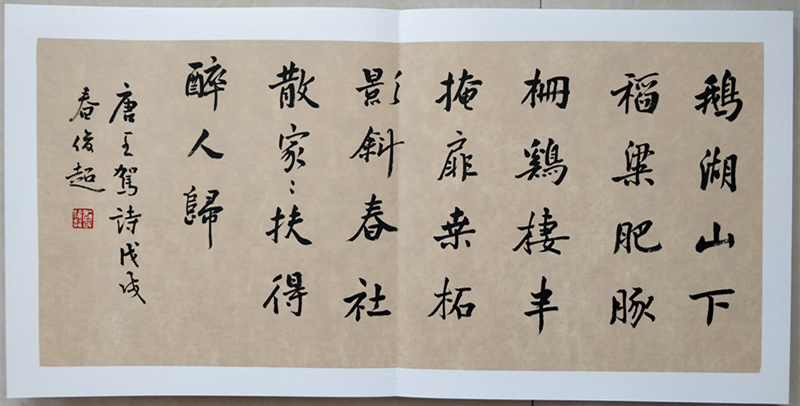 鹅湖山下
稻粱肥豚
栅鷄棲半
掩扉桒柘
影斜春社
散家〻扶得
醉人歸
唐王駕詩戊戌
春俊超